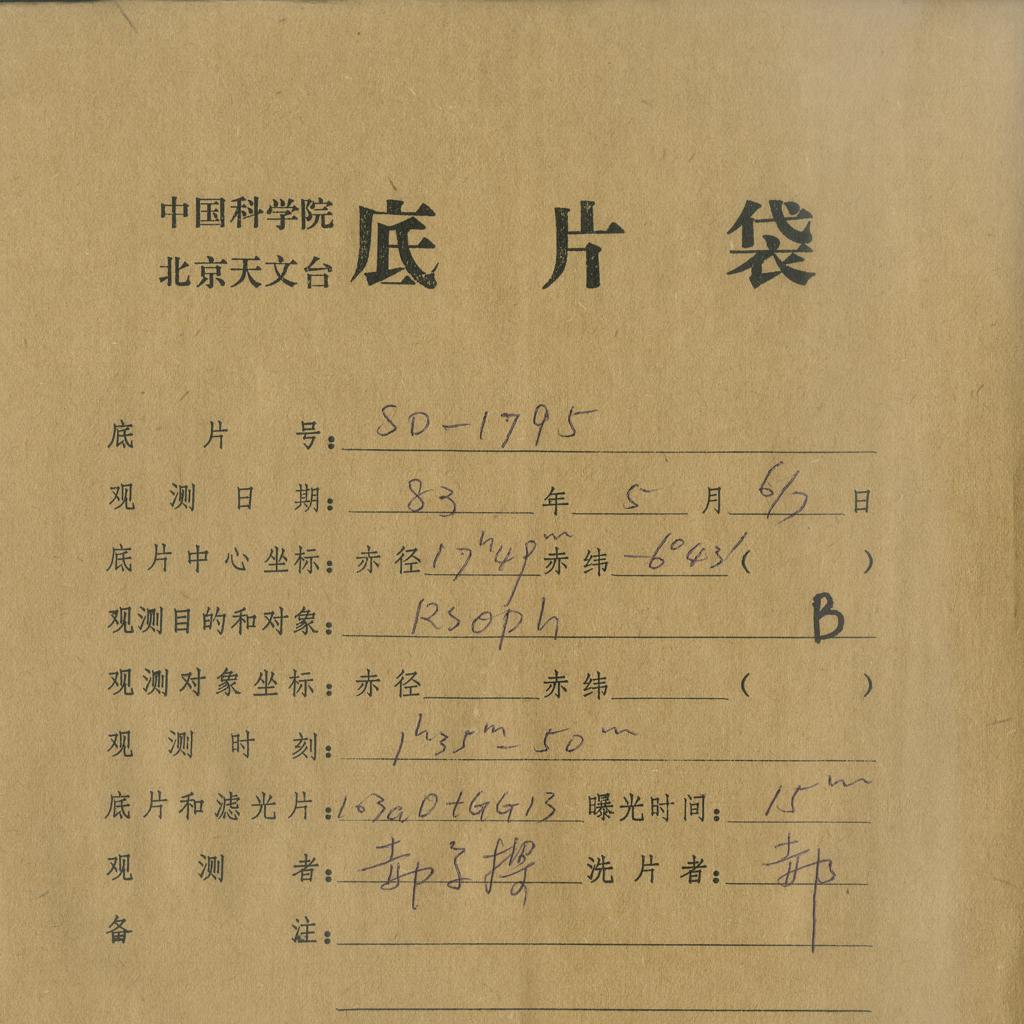 中国科学院
北京天文台 底片袋
底片号：SD-1795
观测日期：83年5月6/7日
底片中心坐标：赤径17ʰ49ᵐ赤纬-6°43′（ ）
观测目的和对象：RSoph B
观测对象坐标：赤径 赤纬 （ ）
观测时刻：1ʰ35ᵐ-50ᵐ
底片和滤光片：103aO+GG13 曝光时间：15ᵐ
观测者：郝 洗片者：郝
备注：